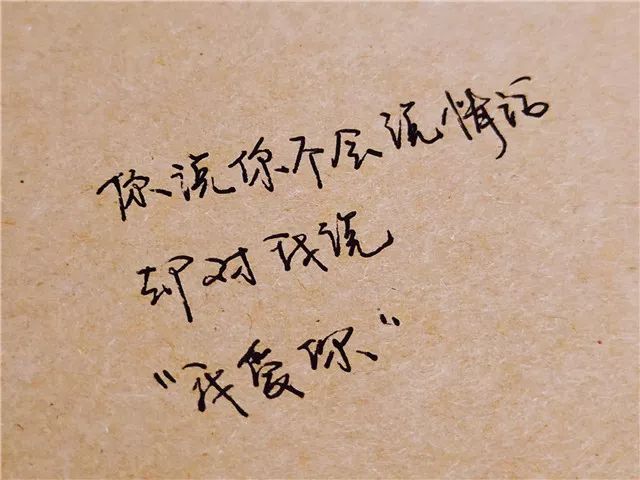 你说你不会说情话
却对我说
“我爱你”